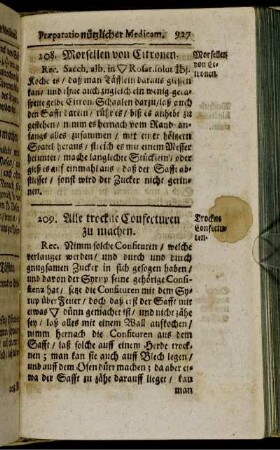 Præparatio nützlicher Medicam. 927
208. Morsellen von Citronen.
Morsellen
von Ci-
tronen.
Rec. Sacch. alb. in ▽ Rosar. solut. ℔j.
Koche es / daß man Täfflein daraus giessen
kan / und ihue auch zugleich ein wenig gera-
spete gelbe Citron-Schaalen darzu / laß auch
den Safft darein / rühr es / biß es anhebt zu
gestehen / nimm es hernach vom Rand an-
fangs alles zusammen / mit einer höltzern
Spatel heraus / stich es mit einem Messer
herunter / mache länglichte Stücklein / oder
gieß es auf einmahl aus / daß der Safft ab-
fliesset / sonst wird der Zucker nicht gerin-
nen.
209. Alle trockne Confecturen
zu machen.
Trockne
Confectu-
ren.
Rec. Nimm solche Confituren / welche
verlanget werden / und durch und durch
gnugsamen Zucker in sich gesogen haben /
und davon der Syrup seine gehörige Consi-
stenz hat / setze die Confituren mit dem Sy-
rup über Feuer / doch daß erst der Safft mit
etwas ▽ dünn gemacht ist / und nicht zähe
sey / laß alles mit einem Wall aufkochen /
nimm hernach die Confituren aus dem
Safft / laß solche auff einem Herde trock-
nen; man kan sie auch auff Blech legen /
und auf dem Ofen dürr machen; da aber et-
wa der Safft zu zähe darauff lieget / kan
man